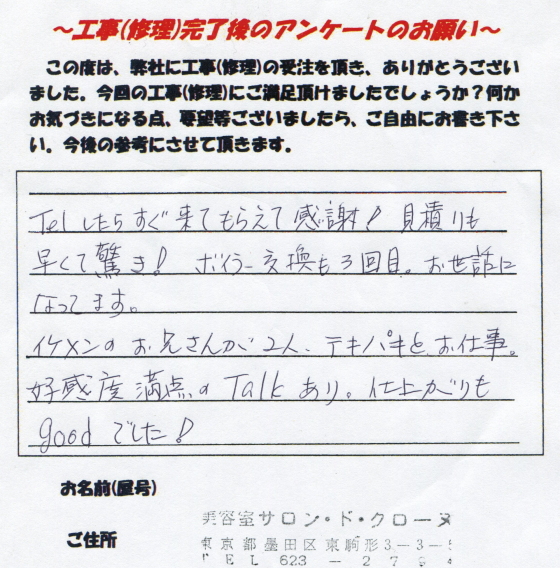 ～工事(修理)完了後のアンケートのお願い～
この度は、弊社に工事(修理)の受注を頂き、ありがとうござい
ました。今回の工事(修理)にご満足頂けましたでしょうか？何か
お気づきになる点、要望等ございましたら、ご自由にお書き下さ
い。今後の参考にさせて頂きます。
Telしたらすぐ来てもらえて感謝！見積りも
早くて驚き！ボイラー交換も3回目。お世話に
なってます。
イケメンのお兄さんが2人、テキパキとお仕事。
好感度満点のTalkあり。仕上がりも
goodでした！
お名前(屋号)
美容室サロン・ド・クローヌ
ご住所
東京都墨田区東駒形3-3-
TEL 623-276